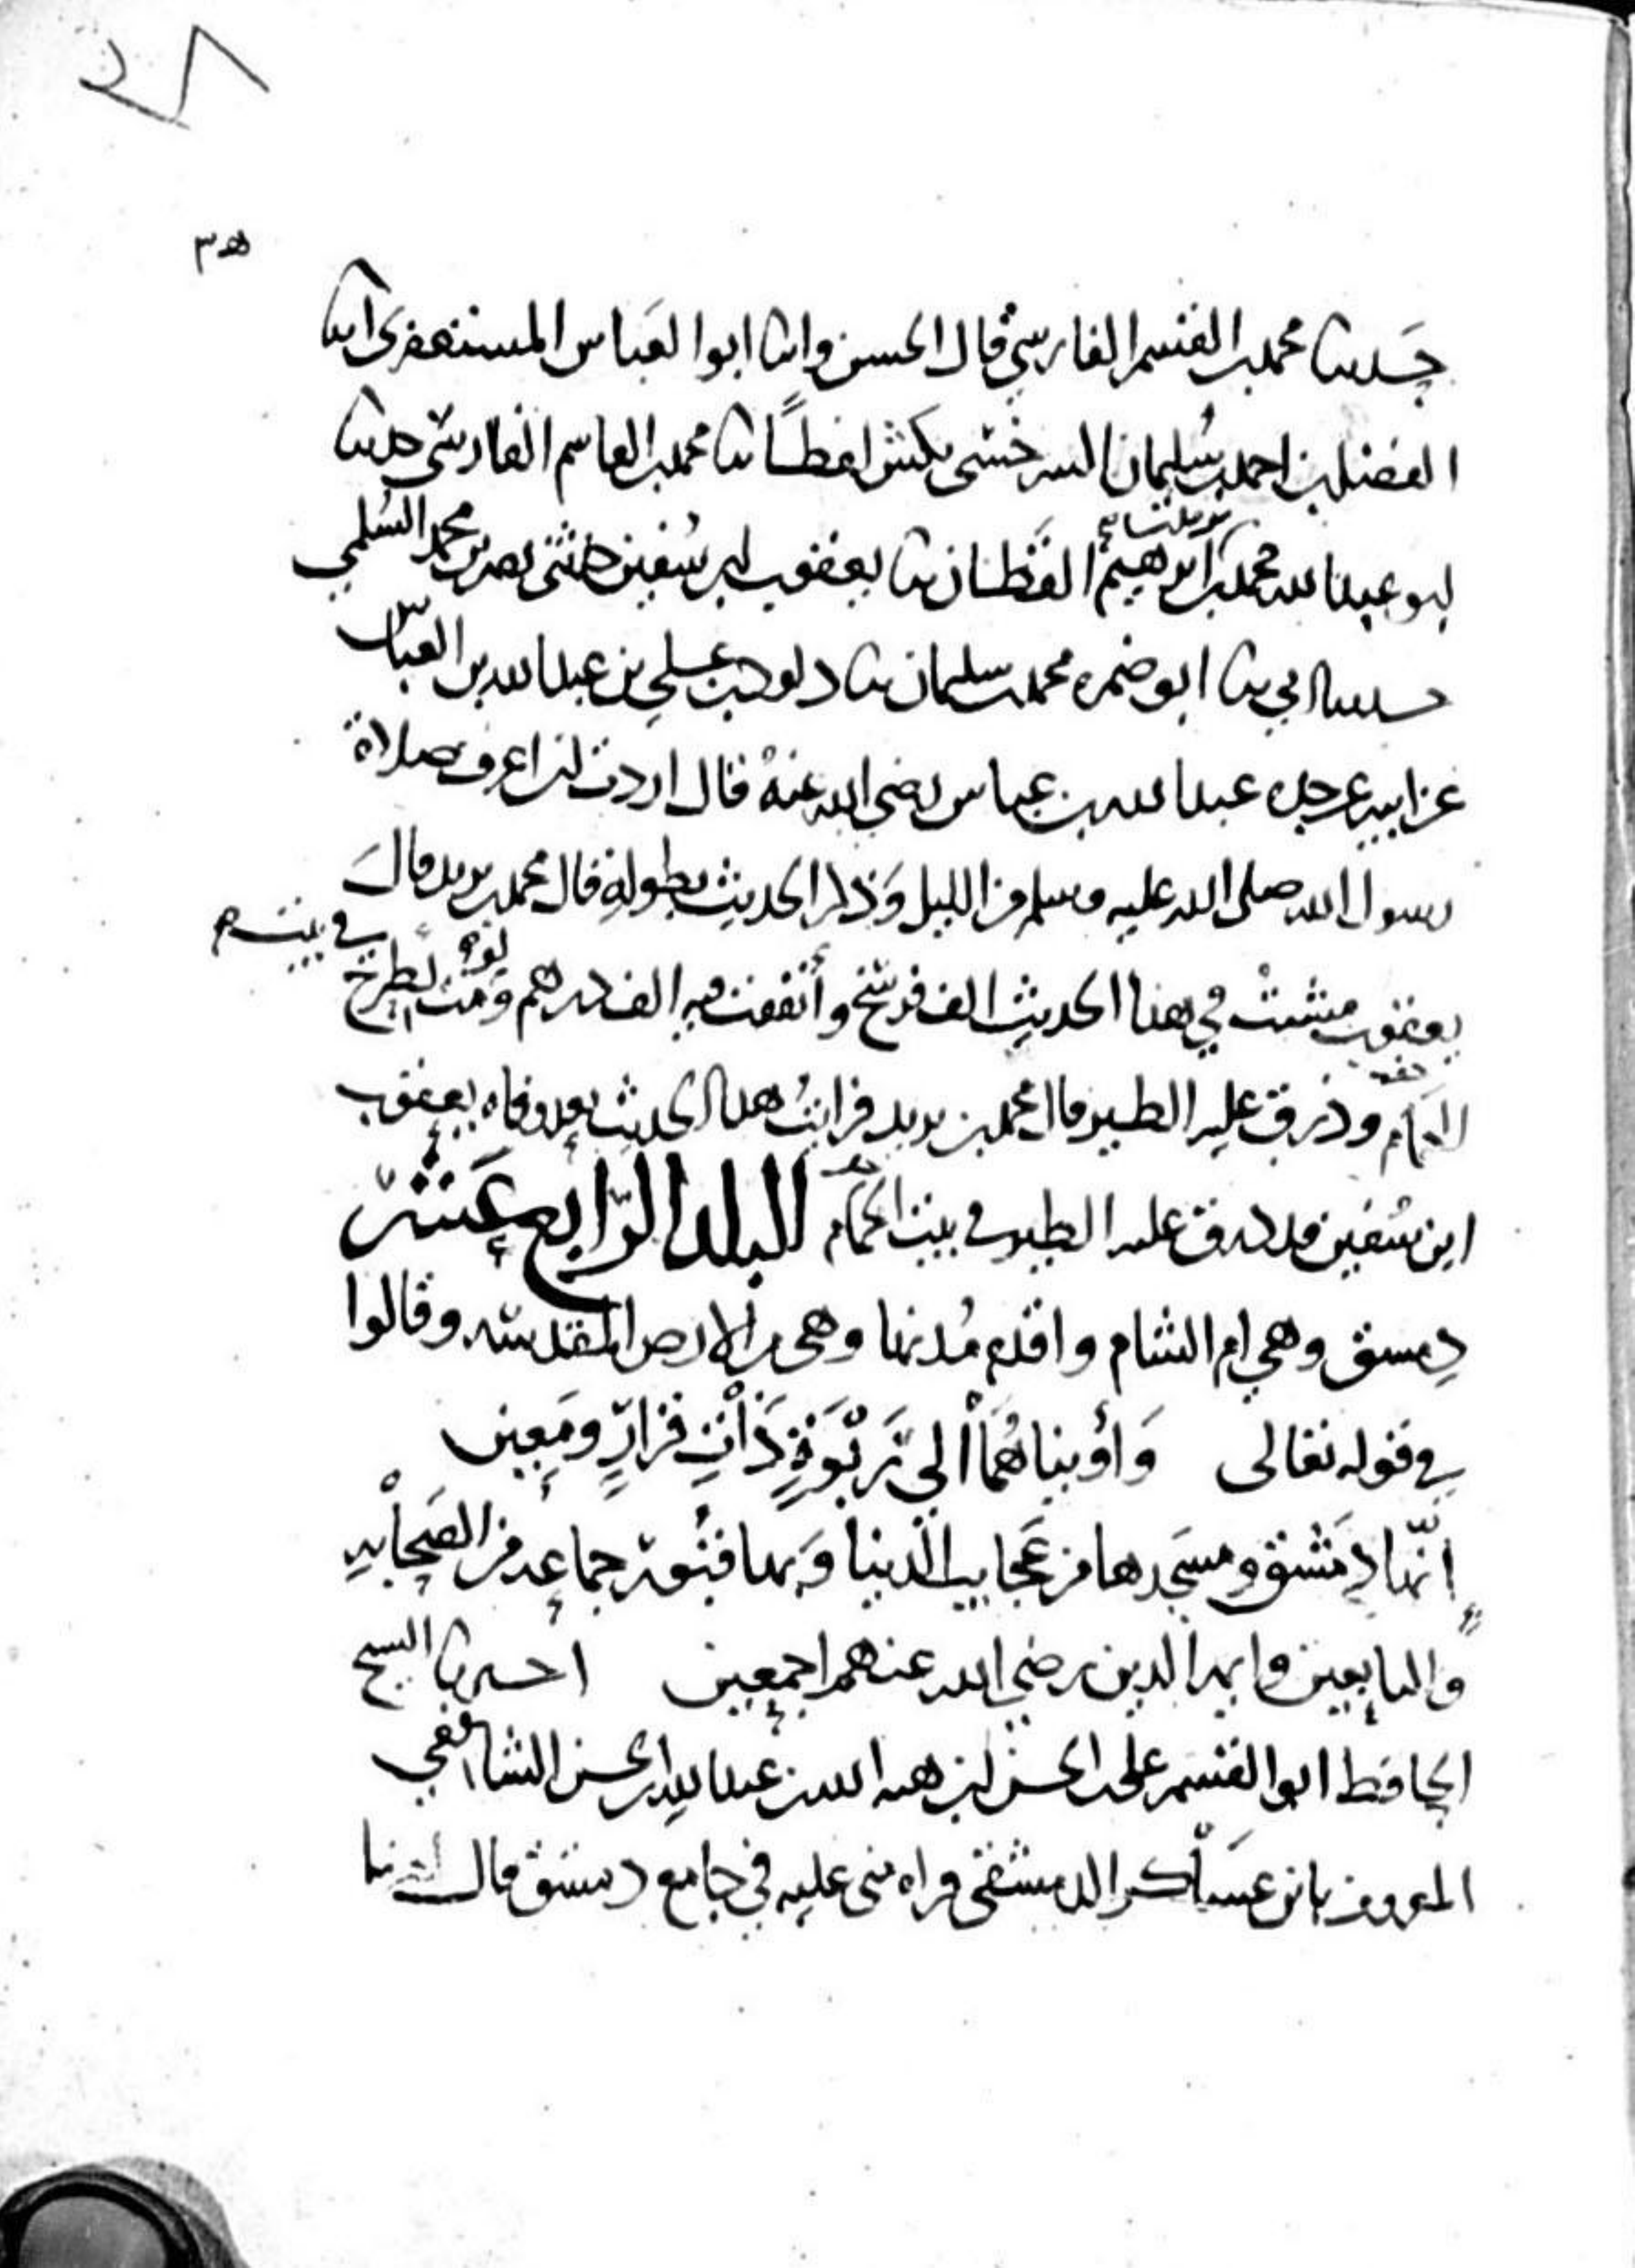 حدثنا محمد بن القسم الفارسي قال الحسن وانا ابوا العباس المستغفري انا
الفضل بن احمد بن سليمان السرخسي بكش لفظا نا محمد بن القاسم الفارسي حدثنا
ابو عبد الله محمد بن ابراهيم القطان نا يعقوب بن سفين حدثني نصر بن محمد السلمي
حدثنا ابي نا ابو ضمره محمد بن سليمان نا داود بن علي بن عبد الله بن العباس
عن ابيه عن جده عبد الله بن عباس رضي الله عنه قال اردت ان اعرف صلاة
رسول الله صلى الله عليه وسلم من الليل وذكر الحديث بطوله قال محمد بن يزيد قال
يعقوب مشيت في هذا الحديث الف فرسخ وأنفقت فيه الف درهم يطرح في بيت
الحمام وذرق عليه الطيور قال محمد بن يزيد فرايت هذا الحديث بعد وفاه يعقوب
ابن سفين قد ذرق عليه الطيور في بيت الحمام البلد الرابع عشر
دمشق وهي ام الشام واقدم مدنها وهي من الارض المقدسه وقالوا
في قوله تعالى وَأويناهُمَا الي رَبْوَةٍ ذَاتِ قرارٍ ومَعين
انّها دمَشق ومسجدها من عجايب الدنيا وبها قبور جماعه من الصحابه
والتابعين وايمه الدين رضي الله عنهم اجمعين اخبرنا الشيخ
الحافظ ابوا القسم علي بن الحسن بن هبه الله بن عبد الله بن الحسن الشافعي
المعروف بابن عساكر الدمشقي قراه مني عليه في جامع دمشق قال